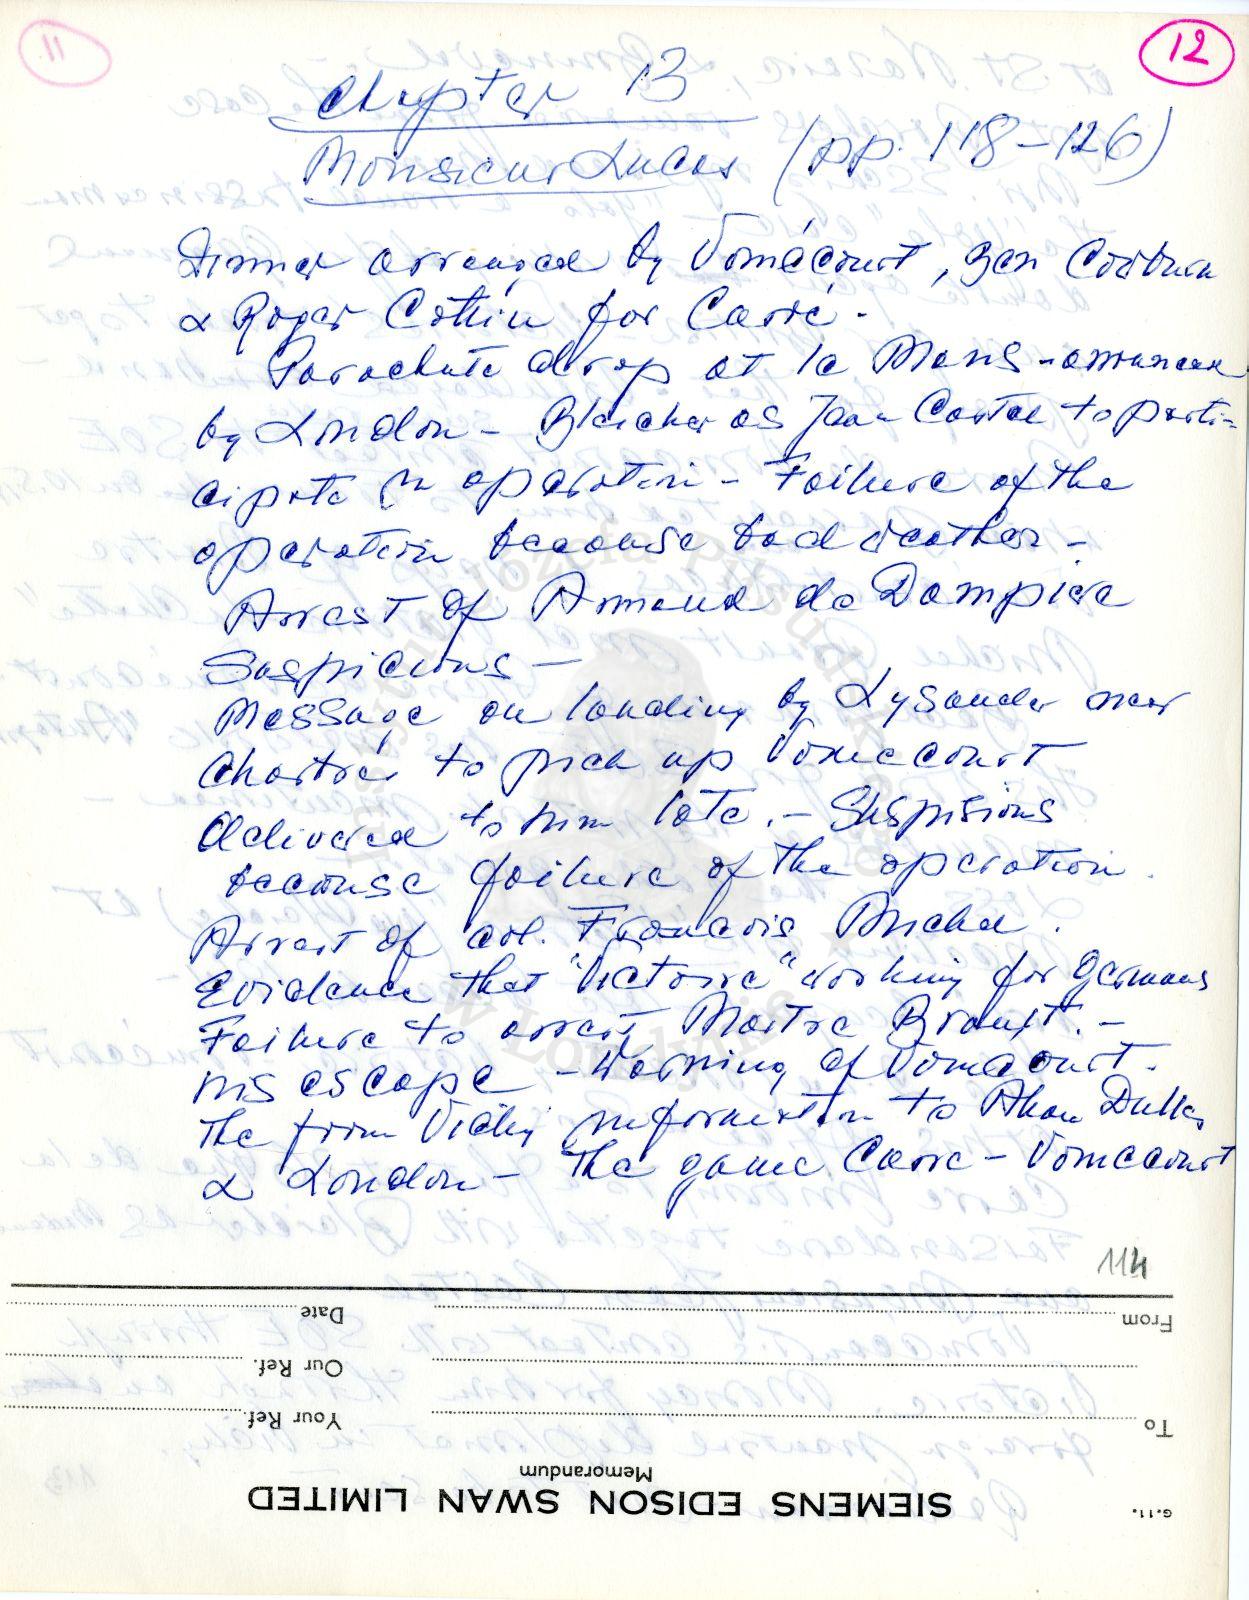 12
Chapter 13
Monsieur Lucas (pp. 118-126)
Dinner arranged by Vomécourt, Ben Cowburn
& Roger Cottin for Carré.
Parachute drop at le Mans - announced
by London - Bleicher as Jean Castel to parti-
cipate in operation - Failure of the
operation because bad weather -
Arrest of Armand de Dampierre
Suspicions -
Message on landing by Lysander near
Chartres to pick up Vomecourt
delivered to him late. - Suspisions
because failure of the operation.
Arrest of col. Francois Michel.
Evidence that "Victoire" working for Germans
Failure to arrest Maitre Brault. -
his escape - Warning of Vomecourt.
The from Vichy information to Allan Dulles
& London - The game Carre - Vomecourt
114
From
Date
Our Ref.
To
Your Ref.
Memorandum
SIEMENS EDISON SWAN LIMITED
G.11.
Instytut Józefa Piłsudskiego w Londynie